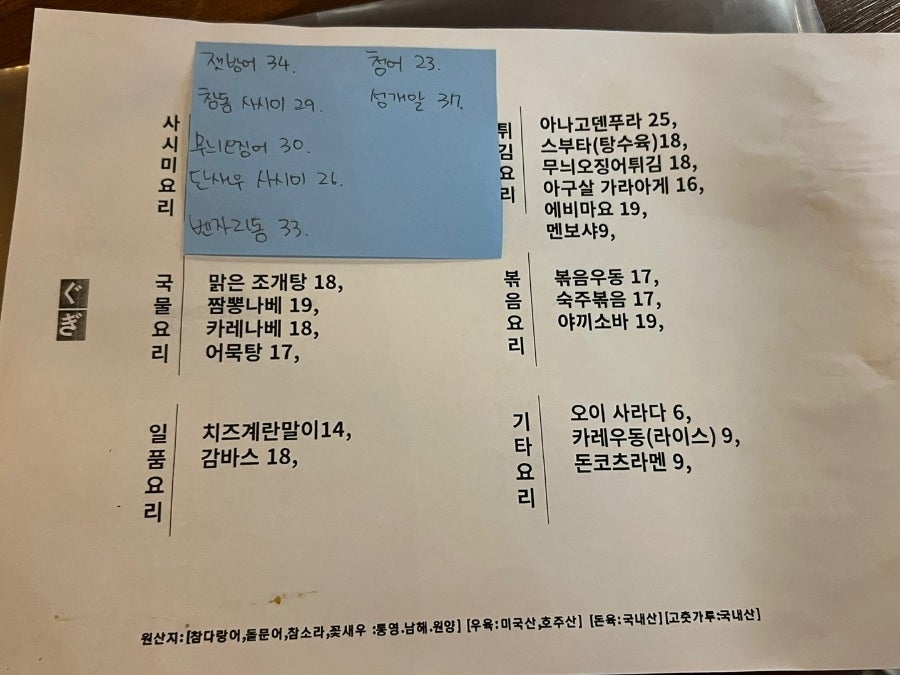 잿방어 34.
청어 23.
참돔 사시미 29.
성게알 37.
무늬오징어 30.
단새우 사시미 26.
벤자리돔 33.
사시미요리
튀김요리
아나고덴푸라 25,
스부타(탕수육)18,
무늬오징어튀김 18,
아구살 가라아게 16,
에비마요 19,
멘보샤9,
ぐぎ
국물요리
맑은 조개탕 18,
짬뽕나베 19,
카레나베 18,
어묵탕 17,
볶음요리
볶음우동 17,
숙주볶음 17,
야끼소바 19,
일품요리
치즈계란말이14,
감바스 18,
기타요리
오이 사라다 6,
카레우동(라이스) 9,
돈코츠라멘 9,
원산지:[참다랑어,돌문어,참소라,꽃새우 :통영.남해.원양] [우육:미국산,호주산] [돈육:국내산][고춧가루:국내산]